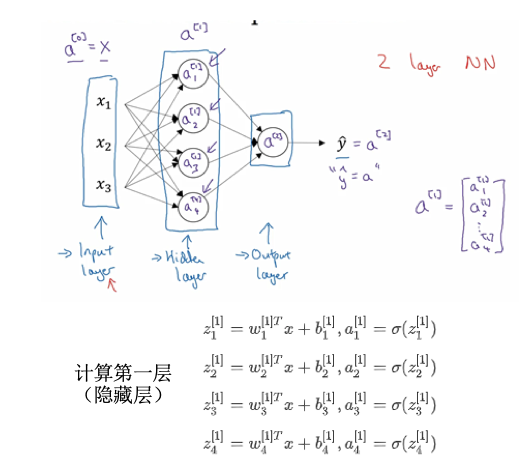 a^[1]
a^[0] = X
2 layer NN
x₁
x₂
x₃
a₁^[1]
a₂^[1]
a₃^[1]
a₄^[1]
a^[2]
ŷ = a^[2]
"y = a"
a^[1] = [a₁^[1] a₂^[1] ⋮ a₄^[1]]
→ Input layer
→ Hidden layer
→ Output layer
计算第一层
(隐藏层)
z₁^[1] = w₁^[1]T x + b₁^[1], a₁^[1] = σ(z₁^[1])
z₂^[1] = w₂^[1]T x + b₂^[1], a₂^[1] = σ(z₂^[1])
z₃^[1] = w₃^[1]T x + b₃^[1], a₃^[1] = σ(z₃^[1])
z₄^[1] = w₄^[1]T x + b₄^[1], a₄^[1] = σ(z₄^[1])